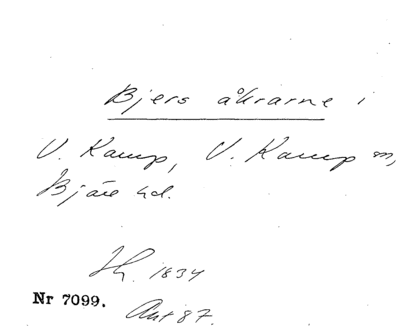 Bjers åkrarne i
V. Karup, V. Karup sn,
Bjäre hd.
Sk. 1834
Nr 7099.
Akt 87.